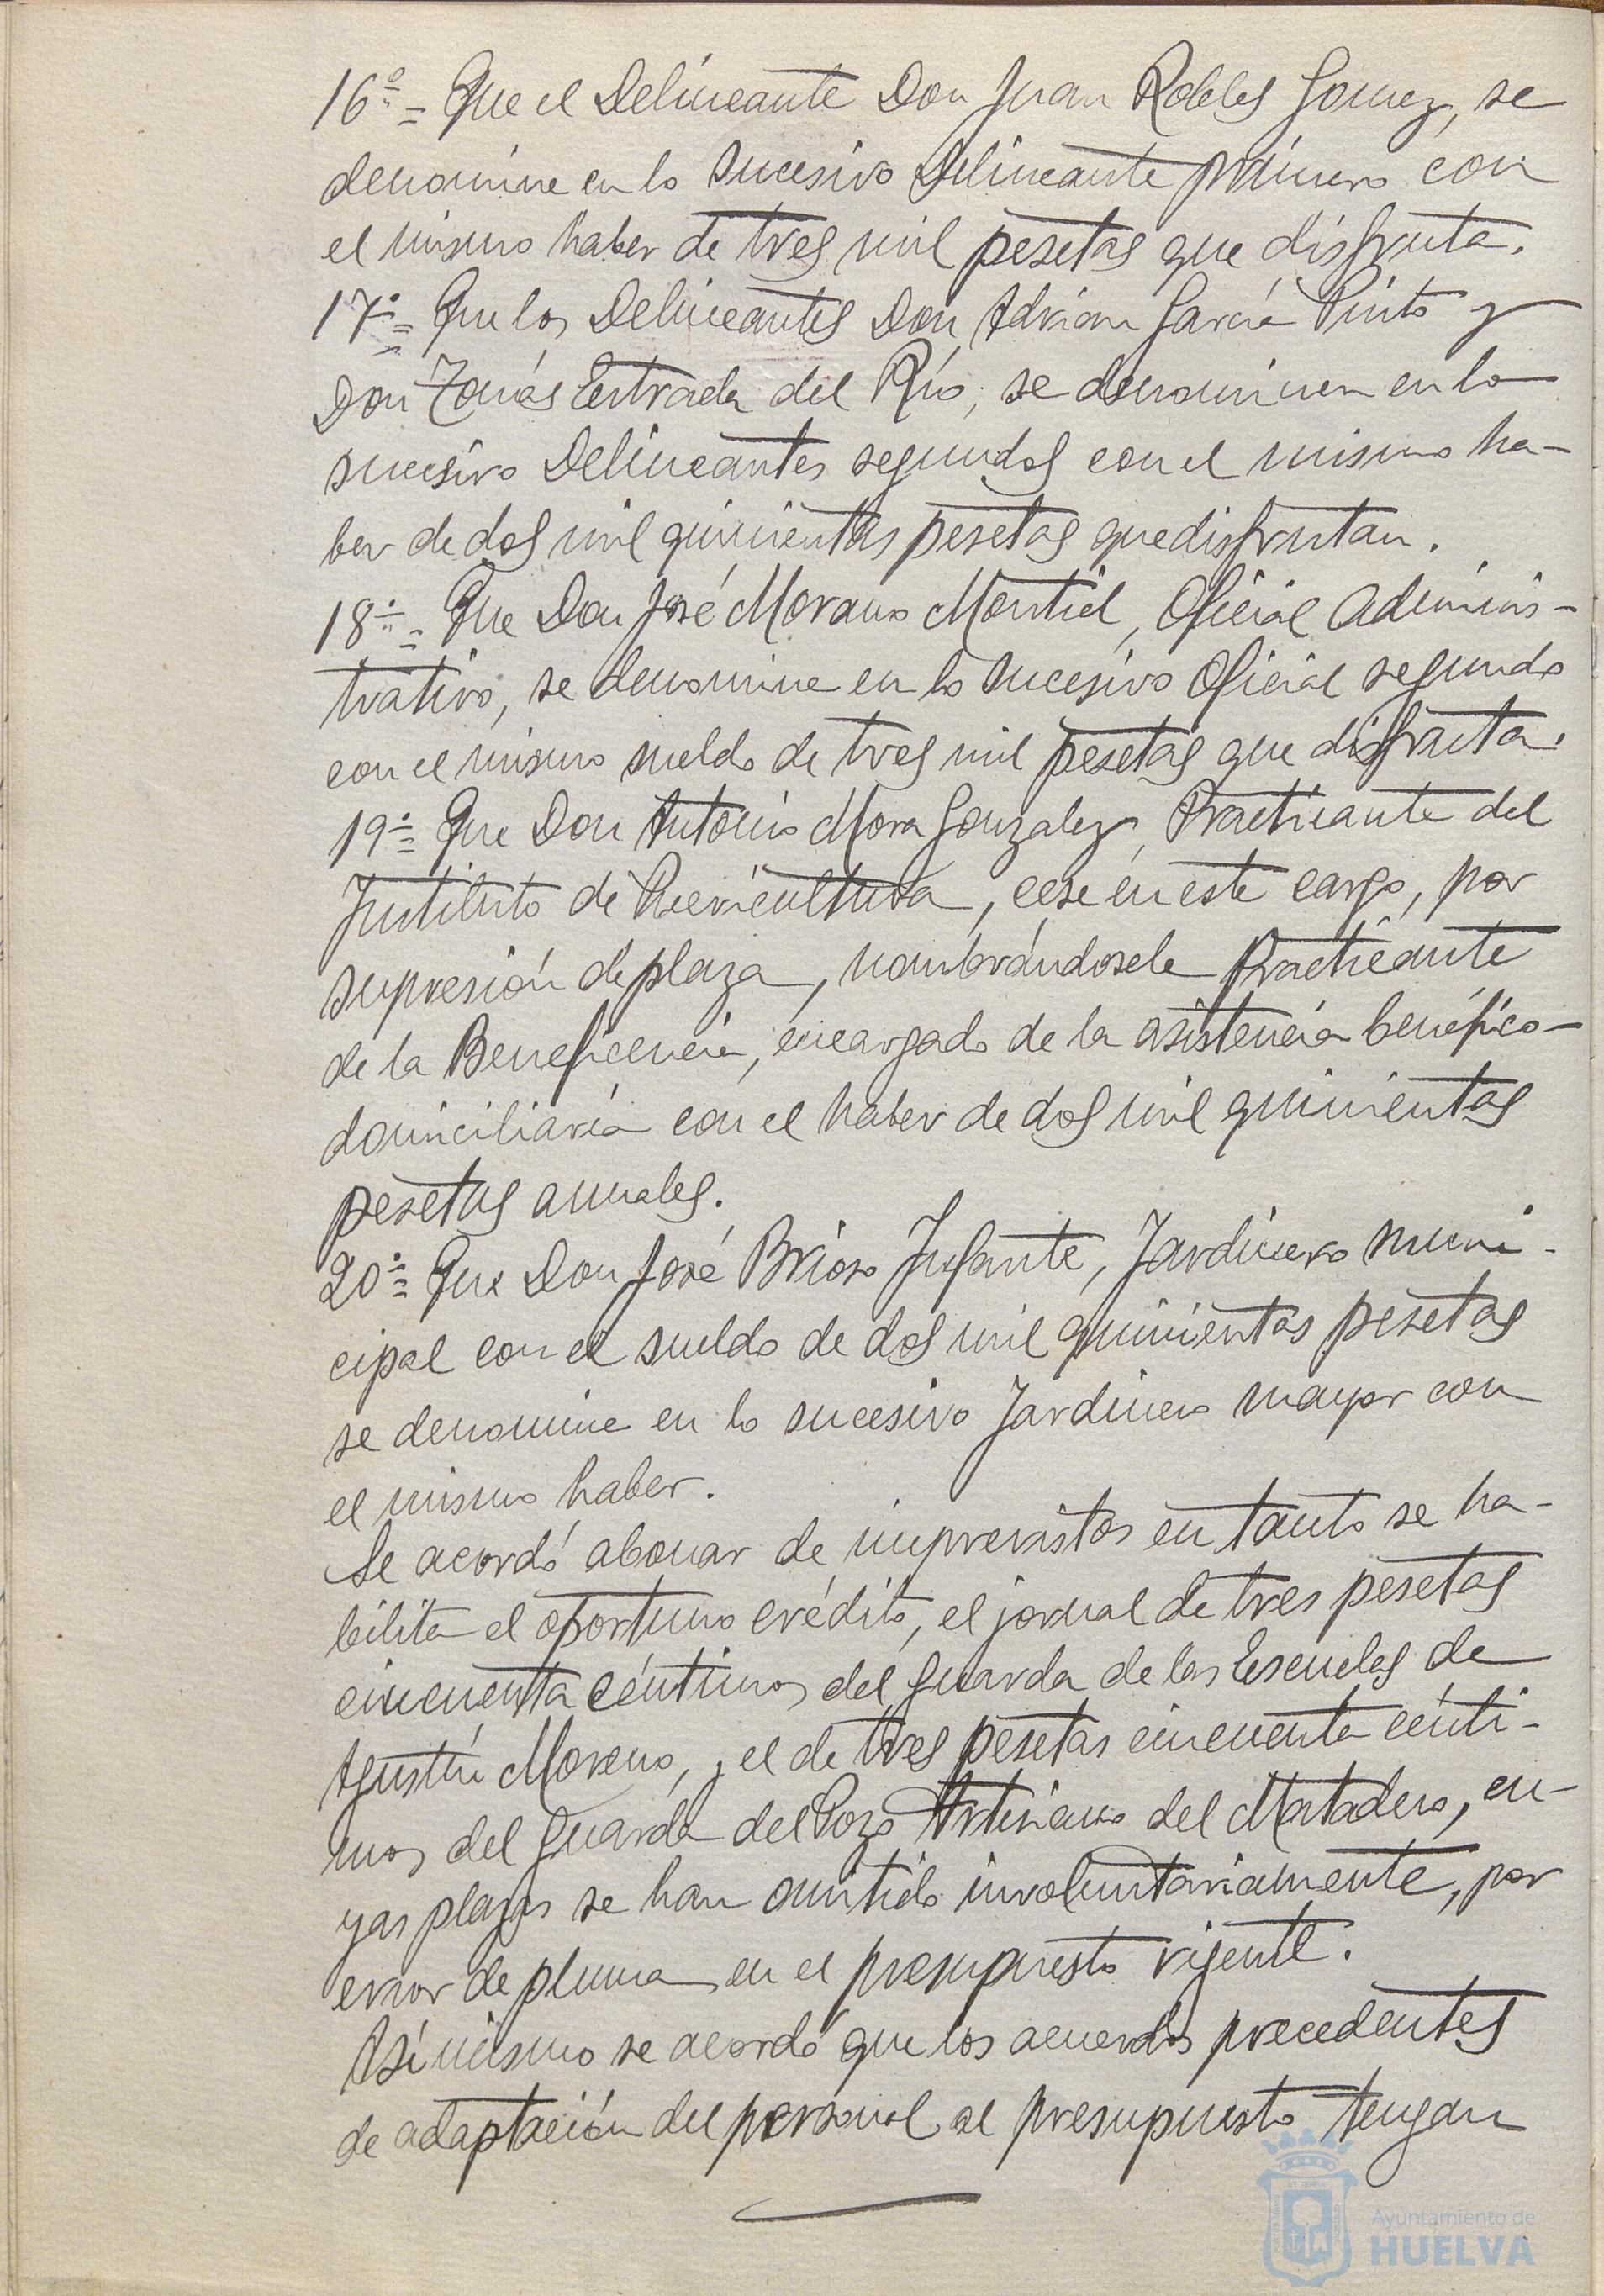 16º = Que el Delineante Don Juan Robles Gomez, se
denomine en lo sucesivo Delineante primero con
el mismo haber de tres mil pesetas que disfruta.
17º = Que los Delineantes Don Adrian García Pinto y
Don Tomás Estrada del Río, se denominen en lo
sucesivo Delineantes segundos con el mismo ha-
ber de dos mil quinientas pesetas que disfrutan.
18º = Que Don José Morano Montiel, Oficial Adminis-
trativo, se denomine en lo sucesivo Oficial segundo
con el mismo sueldo de tres mil pesetas que disfruta.
19º = Que Don Antonio Mora Gonzalez, Practicante del
Instituto de Puericultura, cese en este cargo, por
supresión de plaza, nombrándosele Practicante
de la Beneficencia, encargado de la asistencia benéfico-
domiciliaria con el haber de dos mil quinientas
pesetas anuales.
20º = Que Don José Brioso Infante, Jardinero muni-
cipal con el sueldo de dos mil quinientas pesetas
se denomine en lo sucesivo Jardinero mayor con
el mismo haber.
Se acordó abonar de imprevistos en tanto se ha-
bilita el oportuno crédito, el jornal de tres pesetas
cincuenta céntimos del guarda de las Escuelas de
Agustín Moreno, y el de tres pesetas cincuenta cénti-
mos del guarda del Pozo Artesiano del Matadero, cu-
yas plazas se han omitido involuntariamente, por
error de pluma en el presupuesto vigente.
Asimismo se acordó que los acuerdos precedentes
de adaptación del personal al presupuesto tengan
Ayuntamiento de
HUELVA